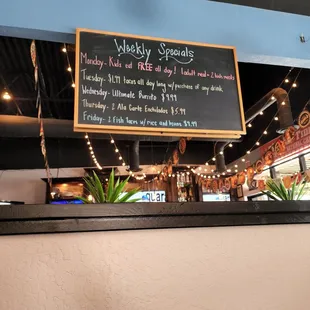 Weekly Specials
Monday- Kids eat FREE all day! 1 adult meal = 2 kids meals
Tuesday- $1.99 tacos all day long w/purchase of any drink
Wednesday- Ultimate Burrito $9.99
Thursday- 2 Ala Carte Enchiladas $5.99
Friday- 2 Fish Tacos w/rice and beans $9.99